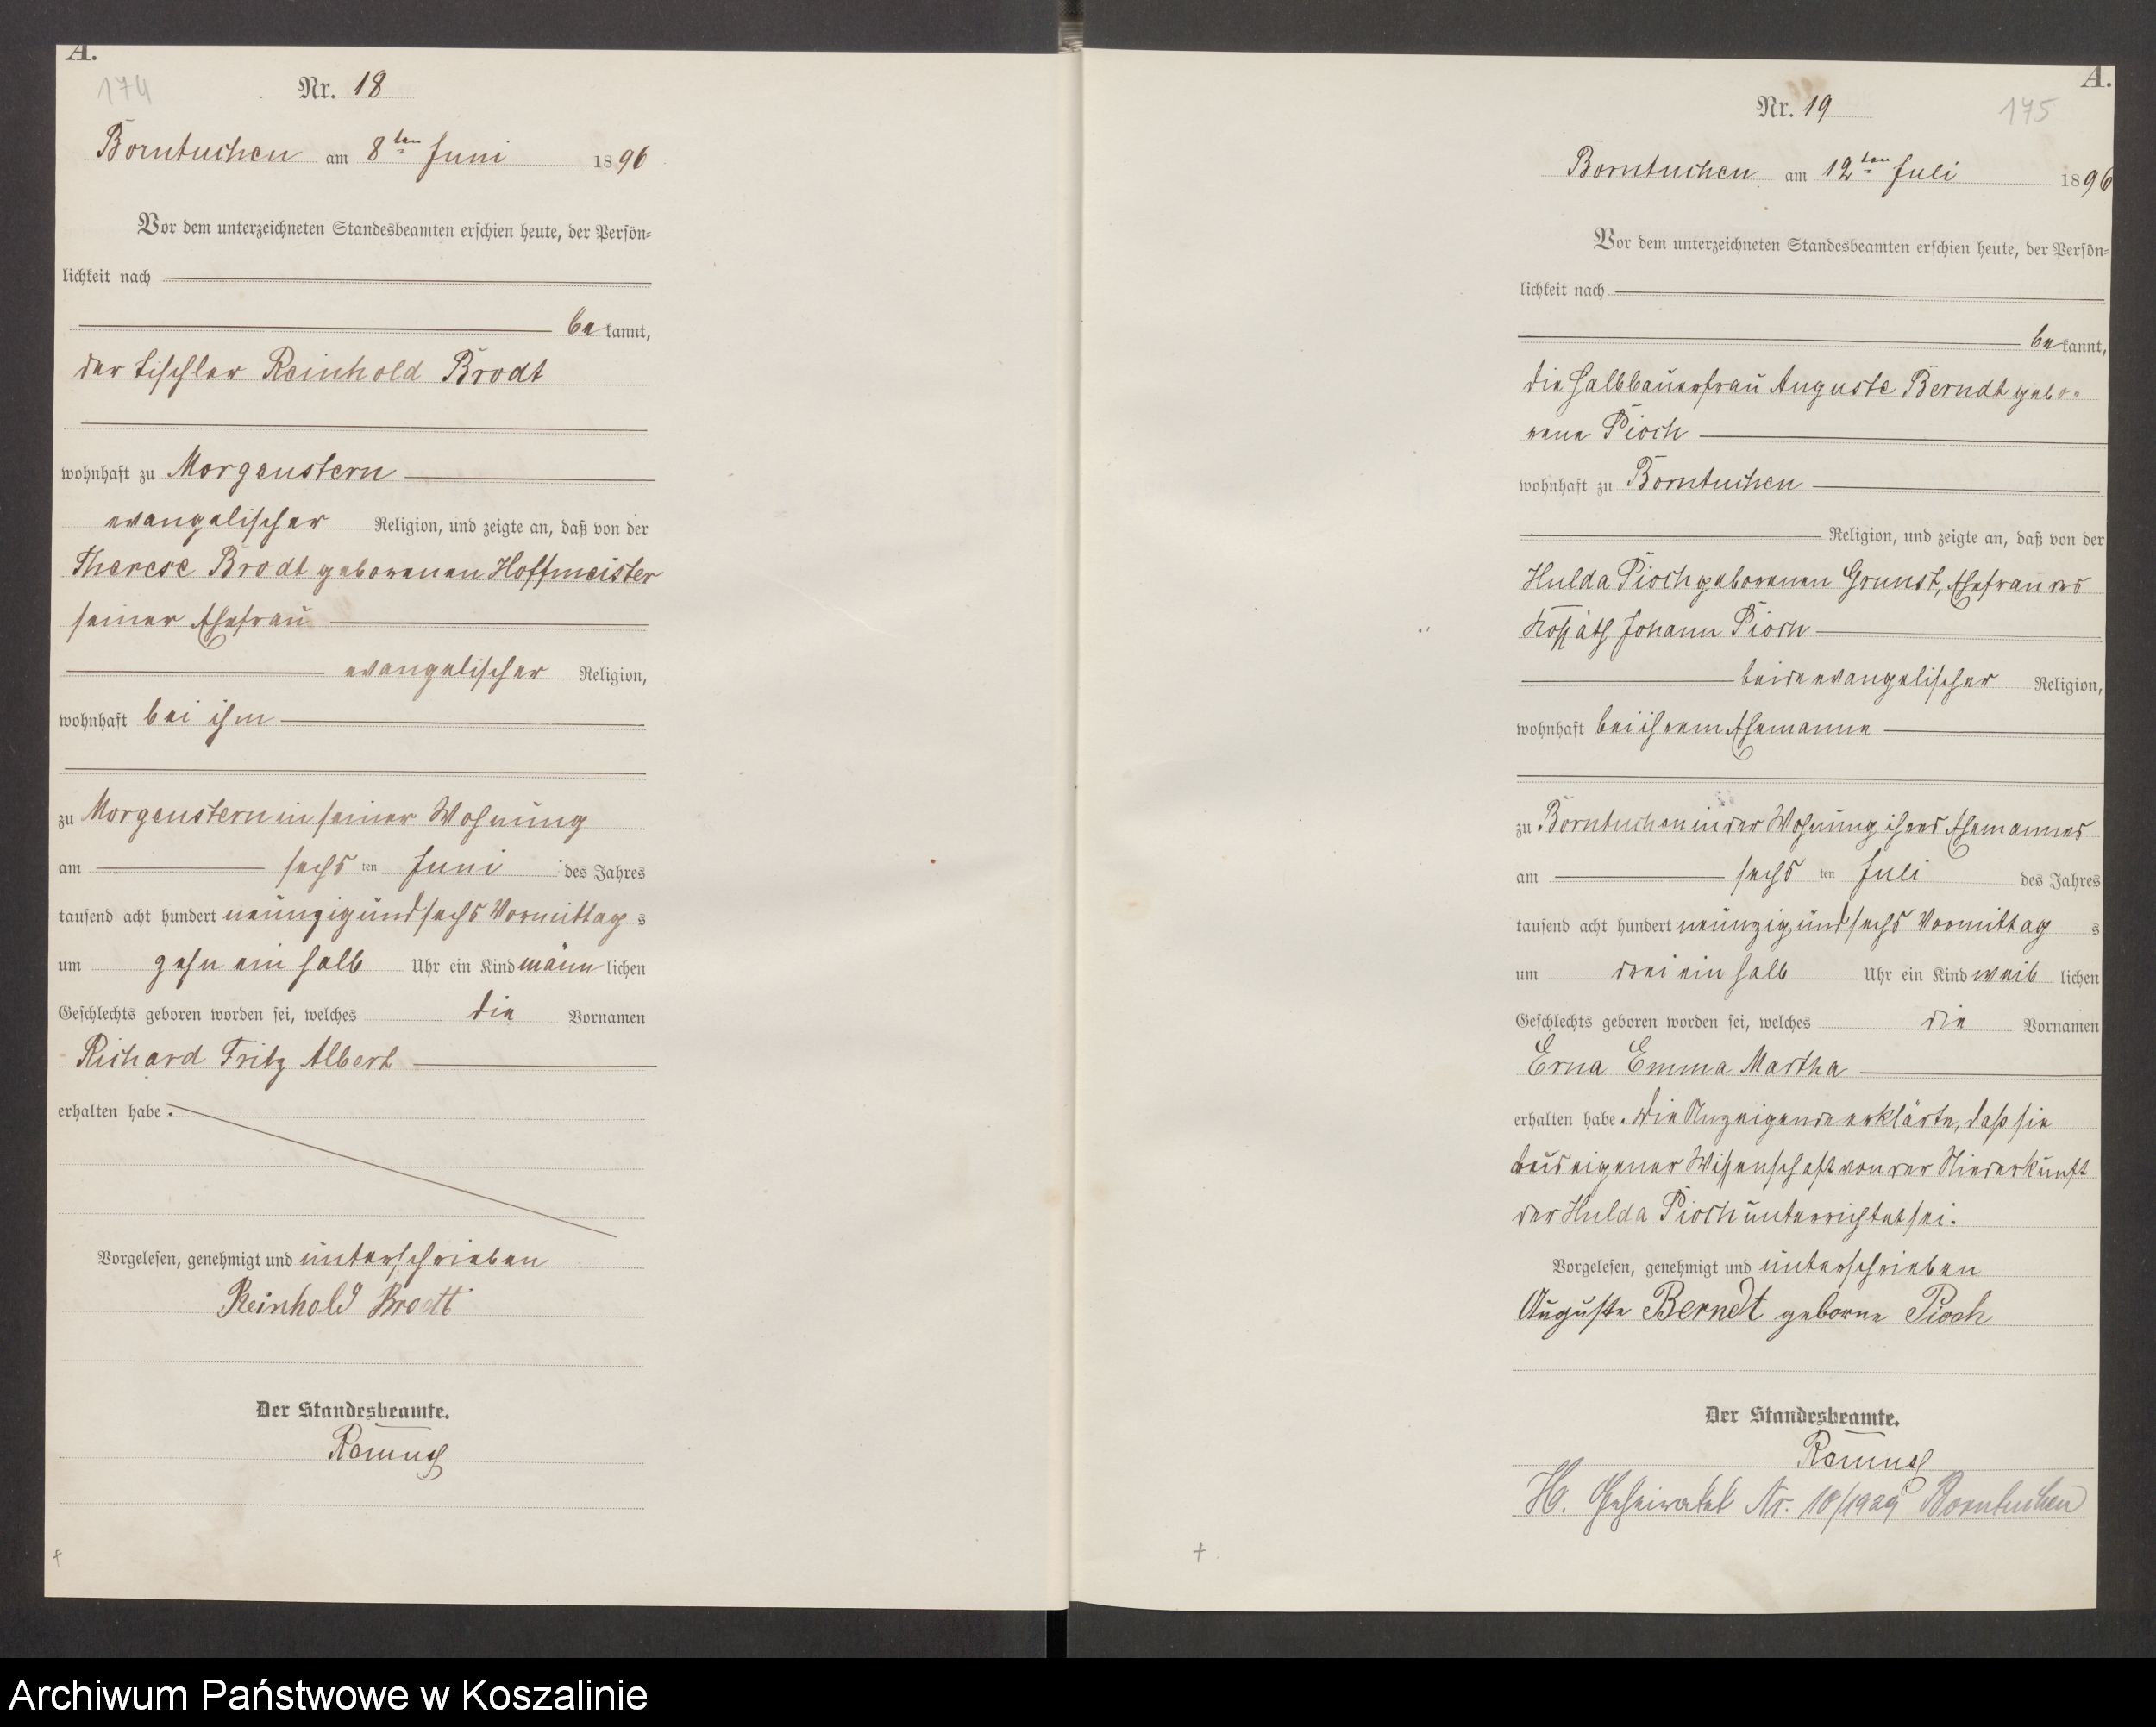 A.
174
Nr. 18
Borntuchen am 8ten Juni 1896
Vor dem unterzeichneten Standesbeamten erschien heute, der Persön=
lichkeit nach
bekannt,
der Tischler Reinhold Brodt
wohnhaft zu Morgenstern
evangelischer Religion, und zeigte an, daß von der
Therese Brodt geborenen Hoffmeister
seiner Ehefrau
evangelischer Religion,
wohnhaft bei ihm
zu Morgenstern in seiner Wohnung
am sechs ten Juni des Jahres
tausend acht hundert neunzig und sechs Vormittag s
um zehn ein halb Uhr ein Kind männ lichen
Geschlechts geboren worden sei, welches die Vornamen
Richard Fritz Albert
erhalten habe.
Vorgelesen, genehmigt und unterschrieben
Reinhold Brodtt
Der Standesbeamte.
A.
175
Nr. 19
Borntuchen am 12ten Juli 1896
Vor dem unterzeichneten Standesbeamten erschien heute, der Persön=
lichkeit nach
bekannt,
die Halbbauerfrau Auguste Berndt gebo-
rene Pioch
wohnhaft zu Borntuchen
Religion, und zeigte an, daß von der
Hulda Pioch geborenen Grunst, Ehefrau des
Kossäth Johann Pioch
beide evangelischer Religion,
wohnhaft bei ihrem Ehemanne
zu Borntuchen in der Wohnung ihres Ehemannes
am sechs ten Juli des Jahres
tausend acht hundert neunzig und sechs Vormittag s
um drei ein halb Uhr ein Kind weib lichen
Geschlechts geboren worden sei, welches die Vornamen
Erna Emma Martha
erhalten habe. Die Anzeigende erklärte, daß sie
aus eigener Wissenschaft von der Niederkunft
der Hulda Pioch unterrichtet sei.
Vorgelesen, genehmigt und unterschrieben
Auguste Berndt geborne Pioch
Der Standesbeamte.
Geheiratet Nr. 10/1929 Borntuchen
Archiwum Państwowe w Koszalinie